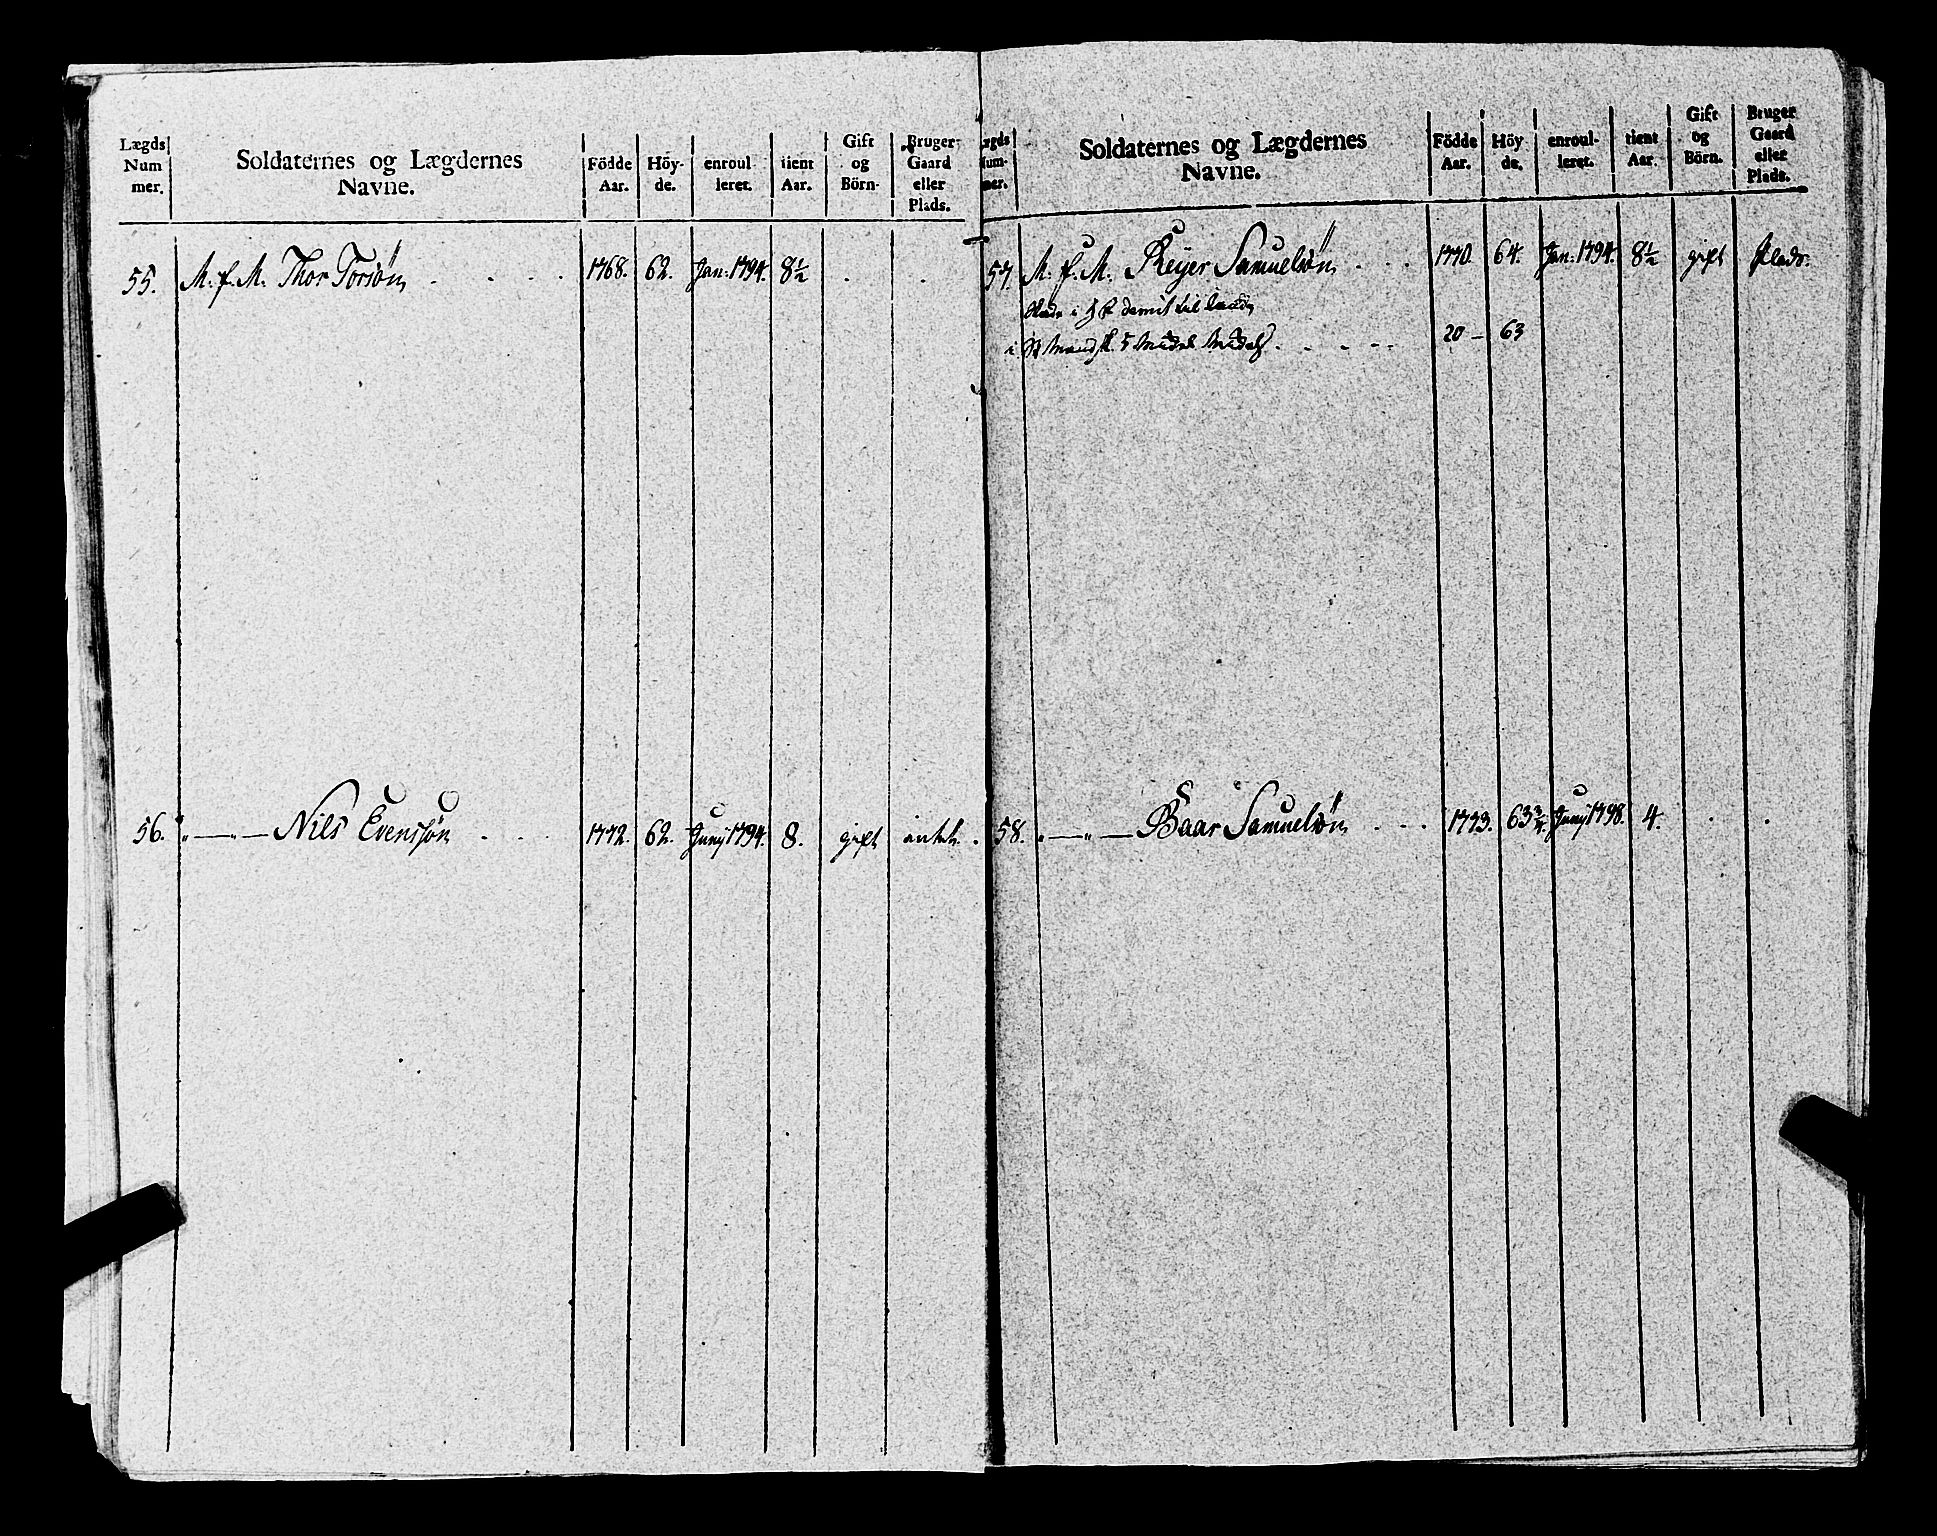 Lægds Num mer. Soldaternes og Lægdernes Navne. Födde Aar. Höy- de. enroul leret. tient Aar. Gift og Börn. Bruger- Gaard eller Plads.
55. M. f. M. Thor Torsön . . . . 1768. 62. Jan: 1794. 8½ . .
56. „—„— Nils Evensön . . . 1772. 62. Juny 1794. 8. gift
Lægds Num- mer. Soldaternes og Lægdernes Navne. Födde Aar. Höy de. enroul- leret. tient Aar. Gift og Börn. Bruger Gaard eller Plads.
57. M. f. M. Reyer Samuelsön . . . 1770. 64. Jan: 1794. 8½ gift Plads.
i
i 5 . . . . . 20 — 63
58. „—„— Baar Samuelsön . . . 1773. 63¾ Juny 1798. 4. . .